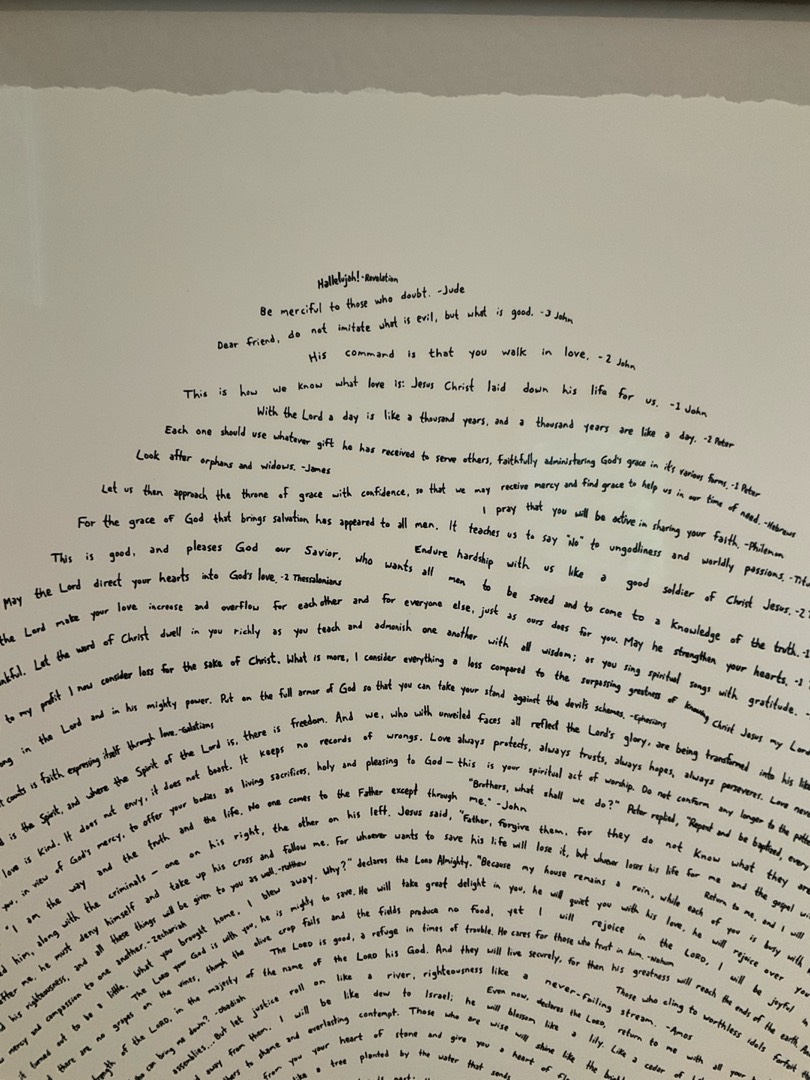 Hallelujah! -Revelation
Be merciful to those who doubt. -Jude
Dear friend, do not imitate what is evil, but what is good. -3 John
His command is that you walk in love. -2 John
This is how we know what love is: Jesus Christ laid down his life for us. -1 John
With the Lord a day is like a thousand years, and a thousand years are like a day. -2 Peter
Each one should use whatever gift he has received to serve others, faithfully administering God's grace in its various forms. -1 Peter
Look after orphans and widows. -James
Let us then approach the throne of grace with confidence, so that we may receive mercy and find grace to help us in our time of need. -Hebrews
I pray that you will be active in sharing your faith. -Philemon
For the grace of God that brings salvation has appeared to all men. It teaches us to say "No" to ungodliness and worldly passions. -Titu
Endure hardship with us like a good soldier of Christ Jesus. -2
This is good, and pleases God our Savior, who wants all men to be saved and to come to a knowledge of the truth. -1
May the Lord direct your hearts into God's love. -2 Thessalonians
the Lord make your love increase and overflow for each other and for everyone else, just as ours does for you. May he strengthen your hearts. -1
nkful. Let the word of Christ dwell in you richly as you teach and admonish one another with all wisdom; as you sing spiritual songs with gratitude. -
to my profit I now consider loss for the sake of Christ. What is more, I consider everything a loss compared to the surpassing greatness of knowing Christ Jesus my Lord
ong in the Lord and in his mighty power. Put on the full armor of God so that you can take your stand against the devil's schemes. -Ephesians
t counts is faith expressing itself through love. -Galatians
d is the Spirit, and where the Spirit of the Lord is, there is freedom. And we, who with unveiled faces all reflect the Lord's glory, are being transformed into his like
love is kind. It does not envy, it does not boast. It keeps no records of wrongs. Love always protects, always trusts, always hopes, always perseveres. Love never
you, in view of God's mercy, to offer your bodies as living sacrifices, holy and pleasing to God — this is your spiritual act of worship. Do not conform any longer to the patte
"Brothers, what shall we do?" Peter replied, "Repent and be baptized, every
"I am the way and the truth and the life. No one comes to the Father except through me." -John
d him, along with the criminals — one on his right, the other on his left. Jesus said, "Father, forgive them, for they do not know what they are
fter me, he must deny himself and take up his cross and follow me. For whoever wants to save his life will lose it, but whoever loses his life for me and the gospel
d his righteousness, and all these things will be given to you as well. -Matthew
Return to me, and I will
mercy and compassion to one another. -Zechariah
it turned out to be a little. What you brought home, I blew away. Why?" declares the LORD Almighty. "Because my house remains a ruin, while each of you is busy with
The LORD your God is with you, he is mighty to save. He will take great delight in you, he will quiet you with his love, he will rejoice over you
there are no grapes on the vines, though the olive crop fails and the fields produce no food, yet I will rejoice in the LORD, I will be joyful
The LORD is good, a refuge in times of trouble. He cares for those who trust in him. -Nahum
trength of the LORD, in the majesty of the name of the LORD his God. And they will live securely, for then his greatness will reach the ends of the earth.
Those who cling to worthless idols forfeit
who can bring me down? -Obadiah
assemblies...But let justice roll on like a river, righteousness like a never-failing stream. -Amos
Even now, declares the LORD, return to me with all your
away from them. I will be like dew to Israel; he will blossom like a lily. Like a cedar of
thers to shame and everlasting contempt. Those who are wise will shine like the
from you your heart of stone and give you a heart of
like a tree planted by the water that sends